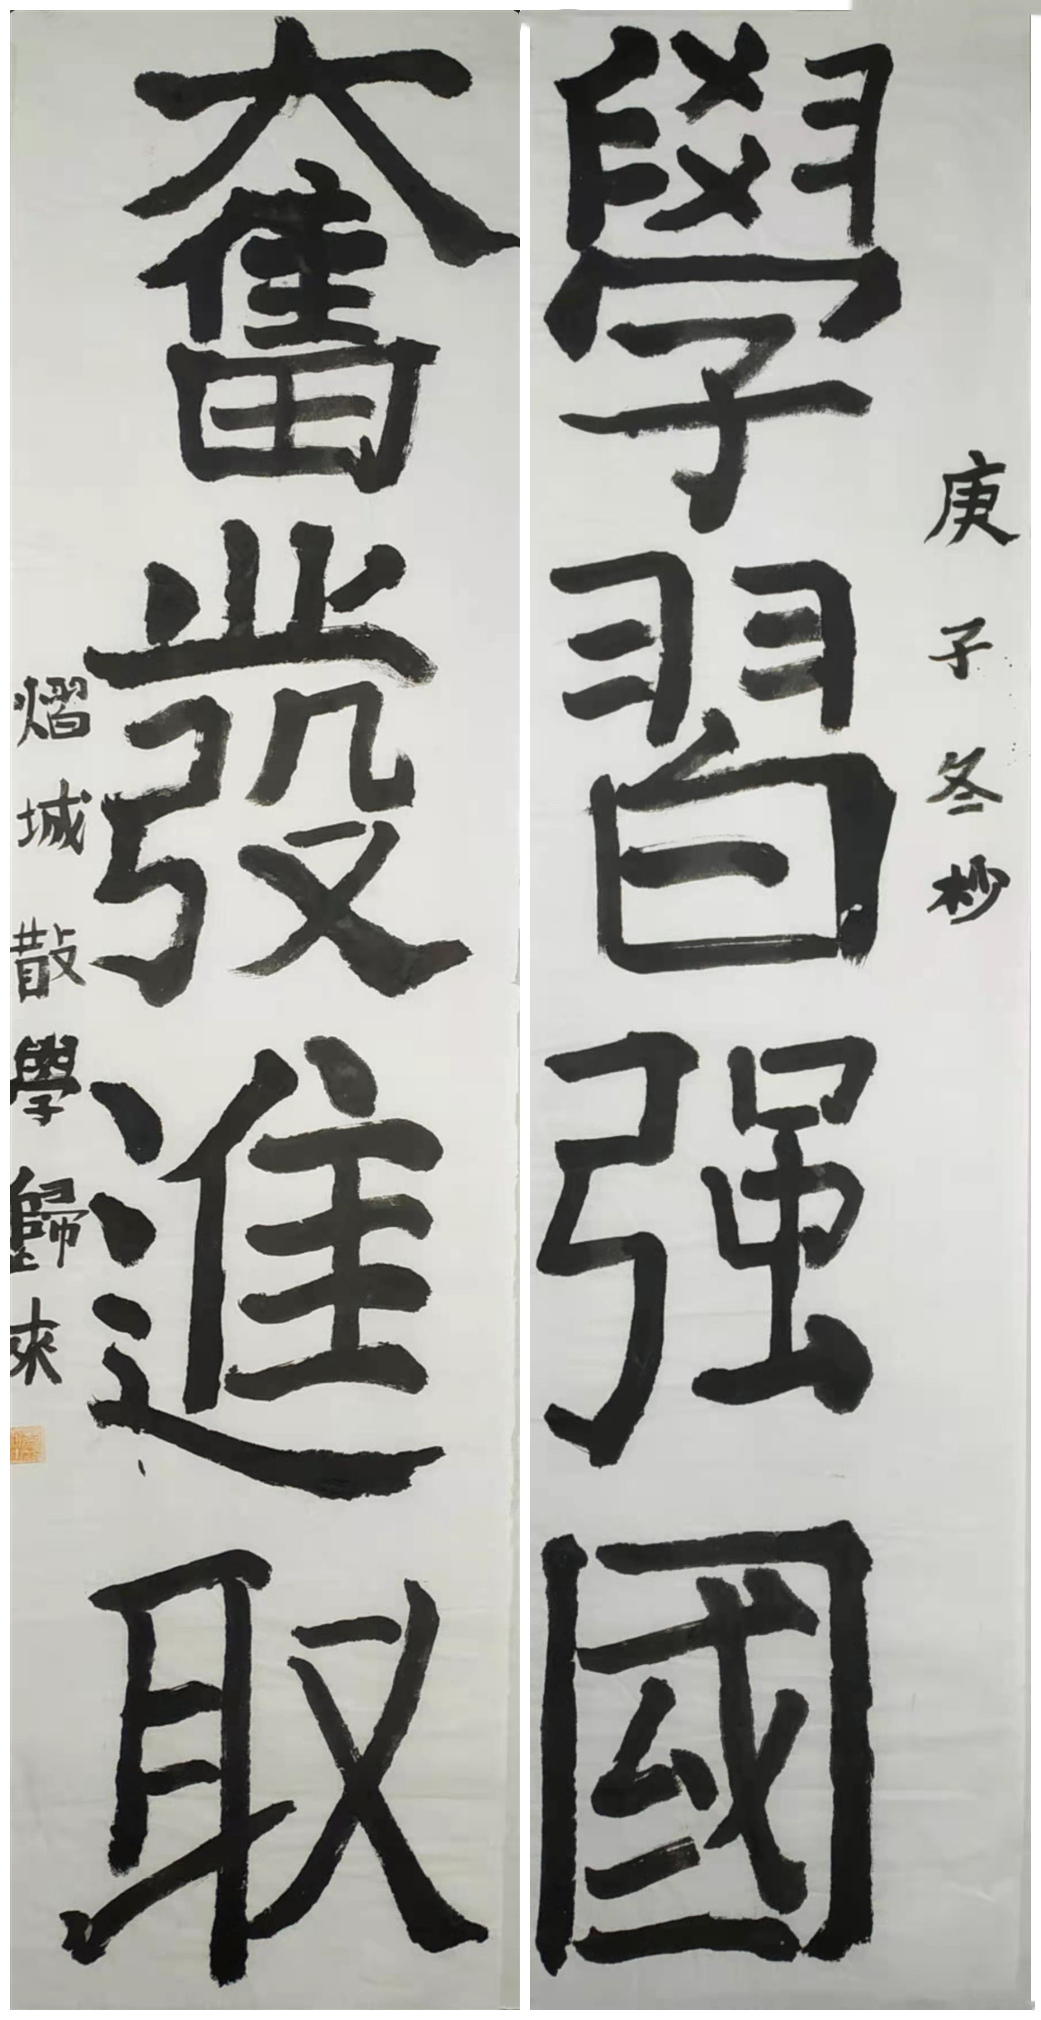 庚子冬杪
學習强國
奮發進取
熠城散學歸來